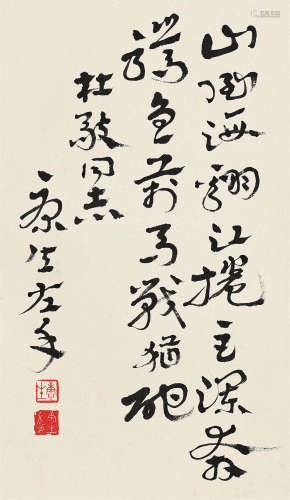 山倒海翻江捲巨瀾奔
騰急萬馬戰猶酣
杜敬同志
康生左手